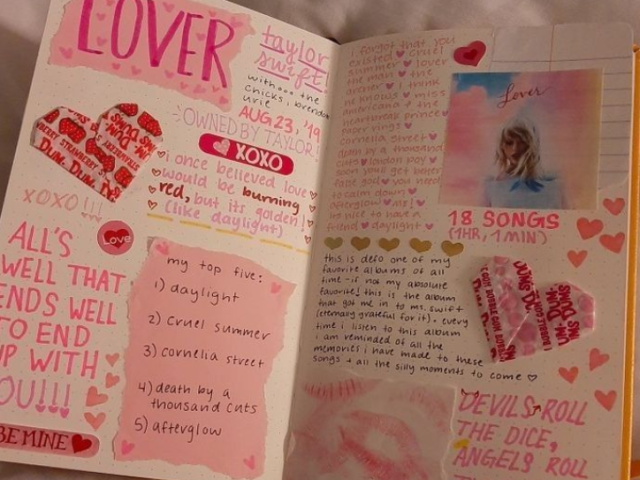 LOVER
taylor
swift!
with... the
chicks, brendon
urie
AUG 23, '19
OWNED BY TAYLOR!
XOXO
i once believed love
would be burning
red, but its golden!
(like daylight)
DUM DUMS
XOXO!!!
Love
ALL'S
WELL THAT
ENDS WELL
TO END
UP WITH
YOU!!!
BE MINE
my top five:
1) daylight
2) cruel summer
3) cornelia street
4) death by a
thousand cuts
5) afterglow
i forgot that you
existed cruel
summer lover
the man the
archer i think
he knows miss
americana + the
heartbreak prince
paper rings
cornelia street
death by a thousand
cuts london boy
soon youll get better
false god you need
to calm down
afterglow me!
its nice to have a
friend daylight
Lover
18 SONGS
(1HR, 1 MIN)
this is defo one of my
favorite albums of all
time - if not my absolute
favorite! this is the album
that got me in to ms. swift
(eternally grateful for it). every
time i listen to this album
i am reminded of all the
memories i have made to these
songs + all the silly moments to come
DEVILS ROLL
THE DICE,
ANGELS ROLL